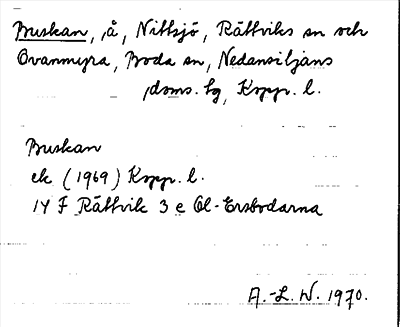 Buskan, å, Nittsjö, Rättviks sn och
Ovanmyra, Boda sn, Nedansiljans
doms. hg, Kopp. l.
Buskan
ek (1969) Kopp. l.
14 F Rättvik 3 e Ol-Ersbodarna
A.-L. W. 1970.